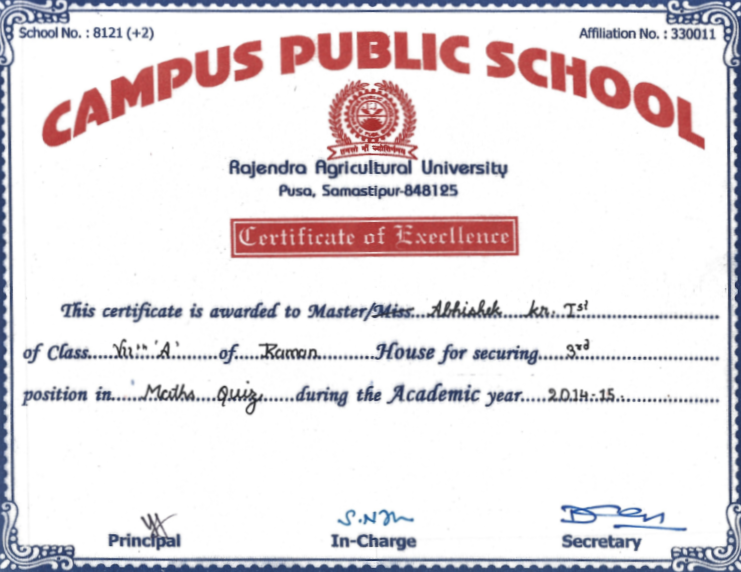 School No. : 8121 (+2)
Affiliation No. : 330011
CAMPUS PUBLIC SCHOOL
तमसो मा ज्योतिर्गमय
Rajendra Agricultural University
Pusa, Samastipur-848125
Certificate of Execllence
This certificate is awarded to Master/Miss Abhishek kr. Ist
of Class VIIth 'A' of Raman House for securing 3rd
position in Maths Quiz during the Academic year 2014-15
Principal
In-Charge
Secretary